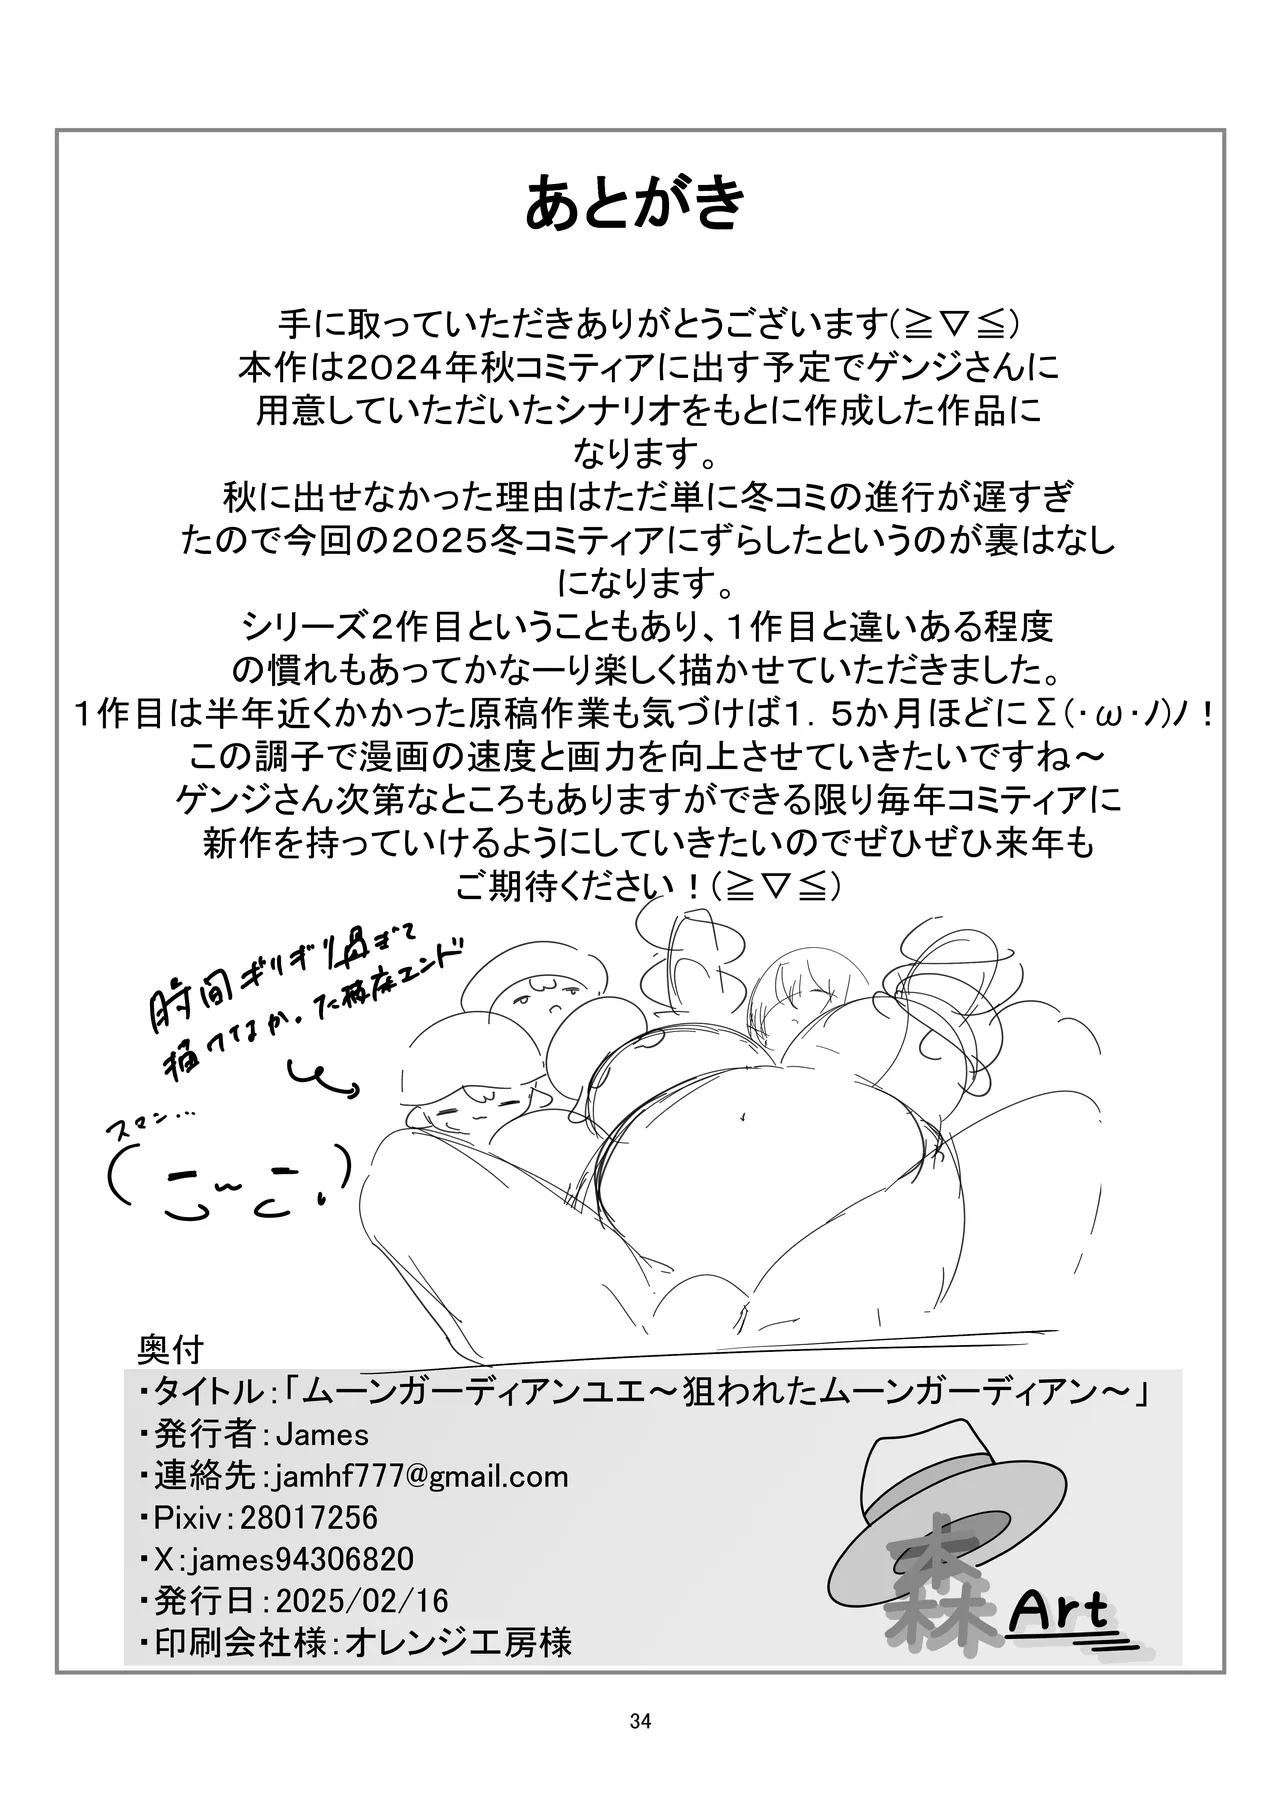 あとがき
手に取っていただきありがとうございます(≧▽≦)
本作は２０２４年秋コミティアに出す予定でゲンジさんに
用意していただいたシナリオをもとに作成した作品に
なります。
秋に出せなかった理由はただ単に冬コミの進行が遅すぎ
たので今回の２０２５冬コミティアにずらしたというのが裏はなし
になります。
シリーズ２作目ということもあり、１作目と違いある程度
の慣れもあってかなーり楽しく描かせていただきました。
１作目は半年近くかかった原稿作業も気づけば１．５か月ほどにΣ(･ω･ﾉ)ﾉ！
この調子で漫画の速度と画力を向上させていきたいですね～
ゲンジさん次第なところもありますができる限り毎年コミティアに
新作を持っていけるようにしていきたいのでぜひぜひ来年も
ご期待ください！(≧▽≦)
時間ギリギリ過ぎて
描けなか。た極床エンド
スマン…
奥付
・タイトル：「ムーンガーディアンユエ～狙われたムーンガーディアン～」
・発行者：James
・連絡先：jamhf777@gmail.com
・Pixiv：28017256
・X：james94306820
・発行日：2025/02/16
・印刷会社様：オレンジ工房様
森Art
34